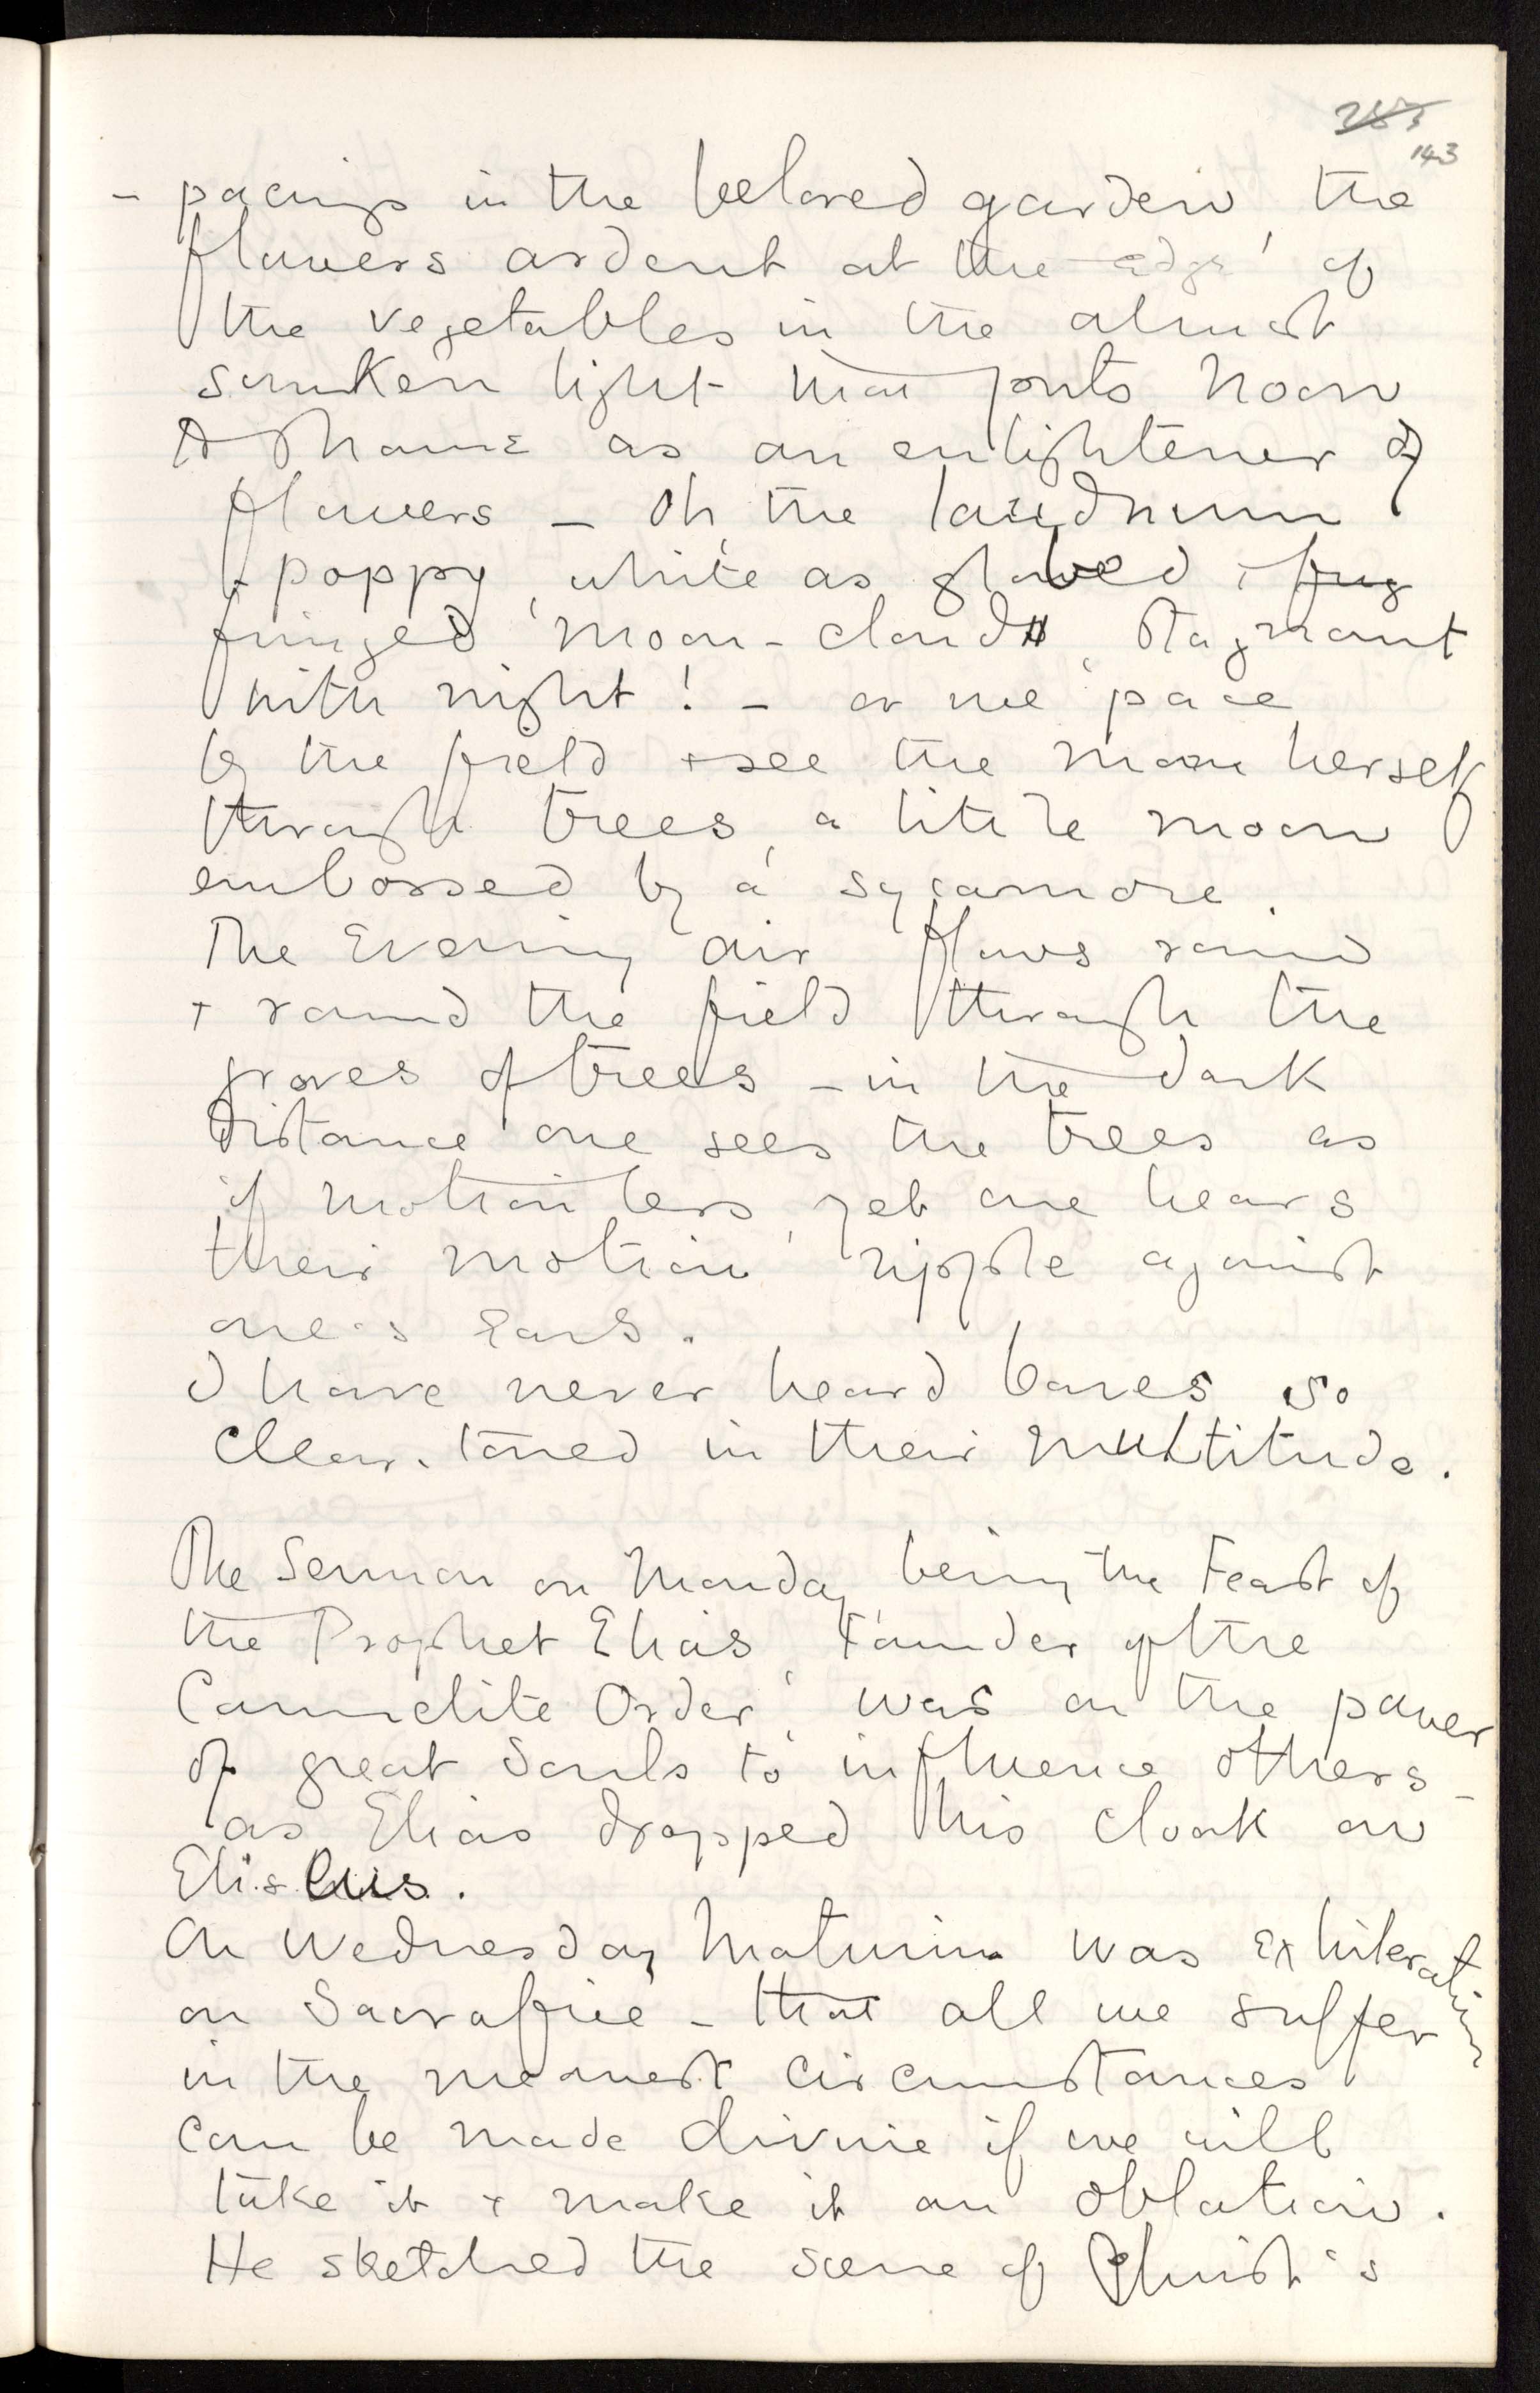 287
143
- pacings in the beloved garden, the
flowers ardent at the edge of
the vegetables in the almost
sunken light that puts noon
to shame as an enlightener of
flowers – Oh, the laudnum
poppy, white as gloved + frug
fringed moon-cloud, stagnant
with night! – or we pace
by the field + see the moon herself
through trees, a little moon
embossed by a sycamore.
The Evening air flows round
+ round the field through the
groves of trees – in the dark
distance one sees the trees as
if motionless, yet one hears
their motion ripple against
one's ears.
I have never heard bares so
clear-toned in their multitude.
The Sermon on Monday, being the Feast of
the Prophet Elias, Founder of the
Carmelite Order, was on the power
of great Souls to influence others –
as Elias dropped his cloak on
Eliseus.
On Wednesday Maturin was exhilerating
on Sacrafice – that all we suffer
in the meanest circumstances
can be made divine if we will
take it + make it an oblation.
He sketched the scene of Christ's